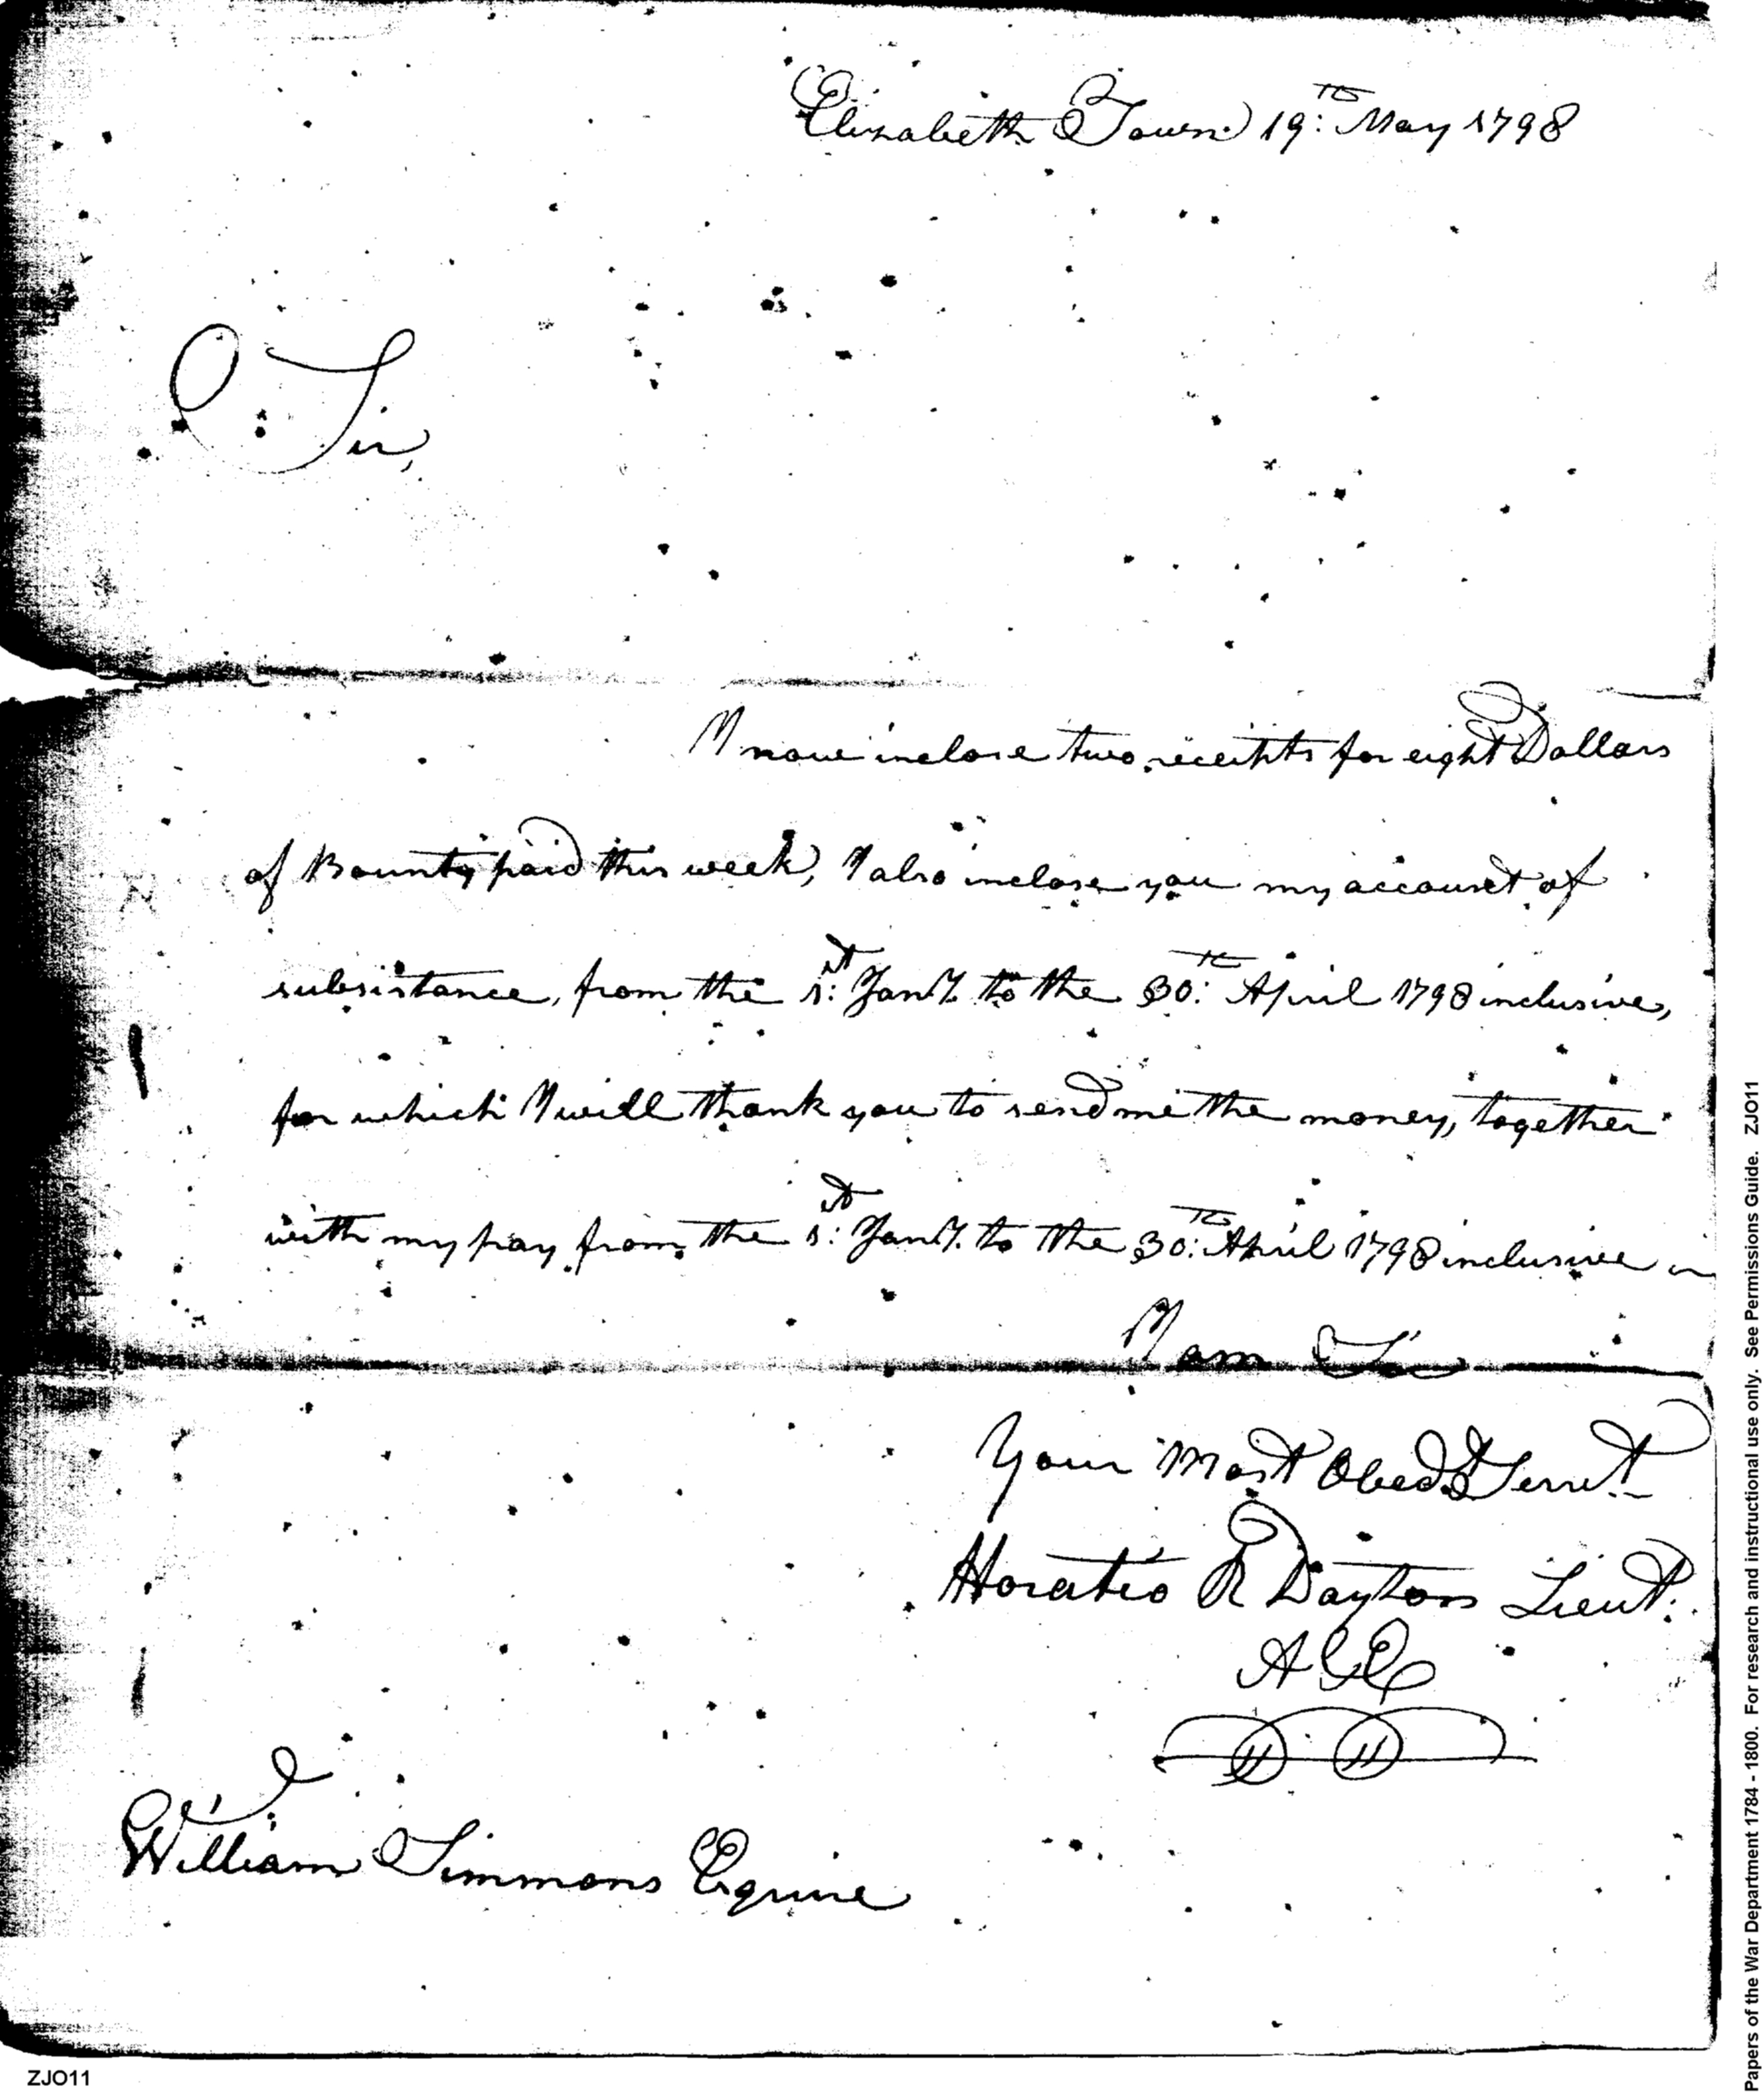 Elizabeth Town 19:th May 1798
Sir,
I now inclose two receipts for eight Dollars
of Bounty paid this week, I also inclose you my account of
subsistance, from the 1:st Jany. to the 30:th April 1798 inclusive,
for which I will thank you to send me the money, together
with my pay from the 1:st Jany. to the 30:th April 1798 inclusive
I am Sir
Your Most Obedt Servt.
Horatio R Dayton Lieut.
William Simmons Esquire
ZJO11
Papers of the War Department 1784 - 1800. For research and instructional use only. See Permissions Guide. ZJO11